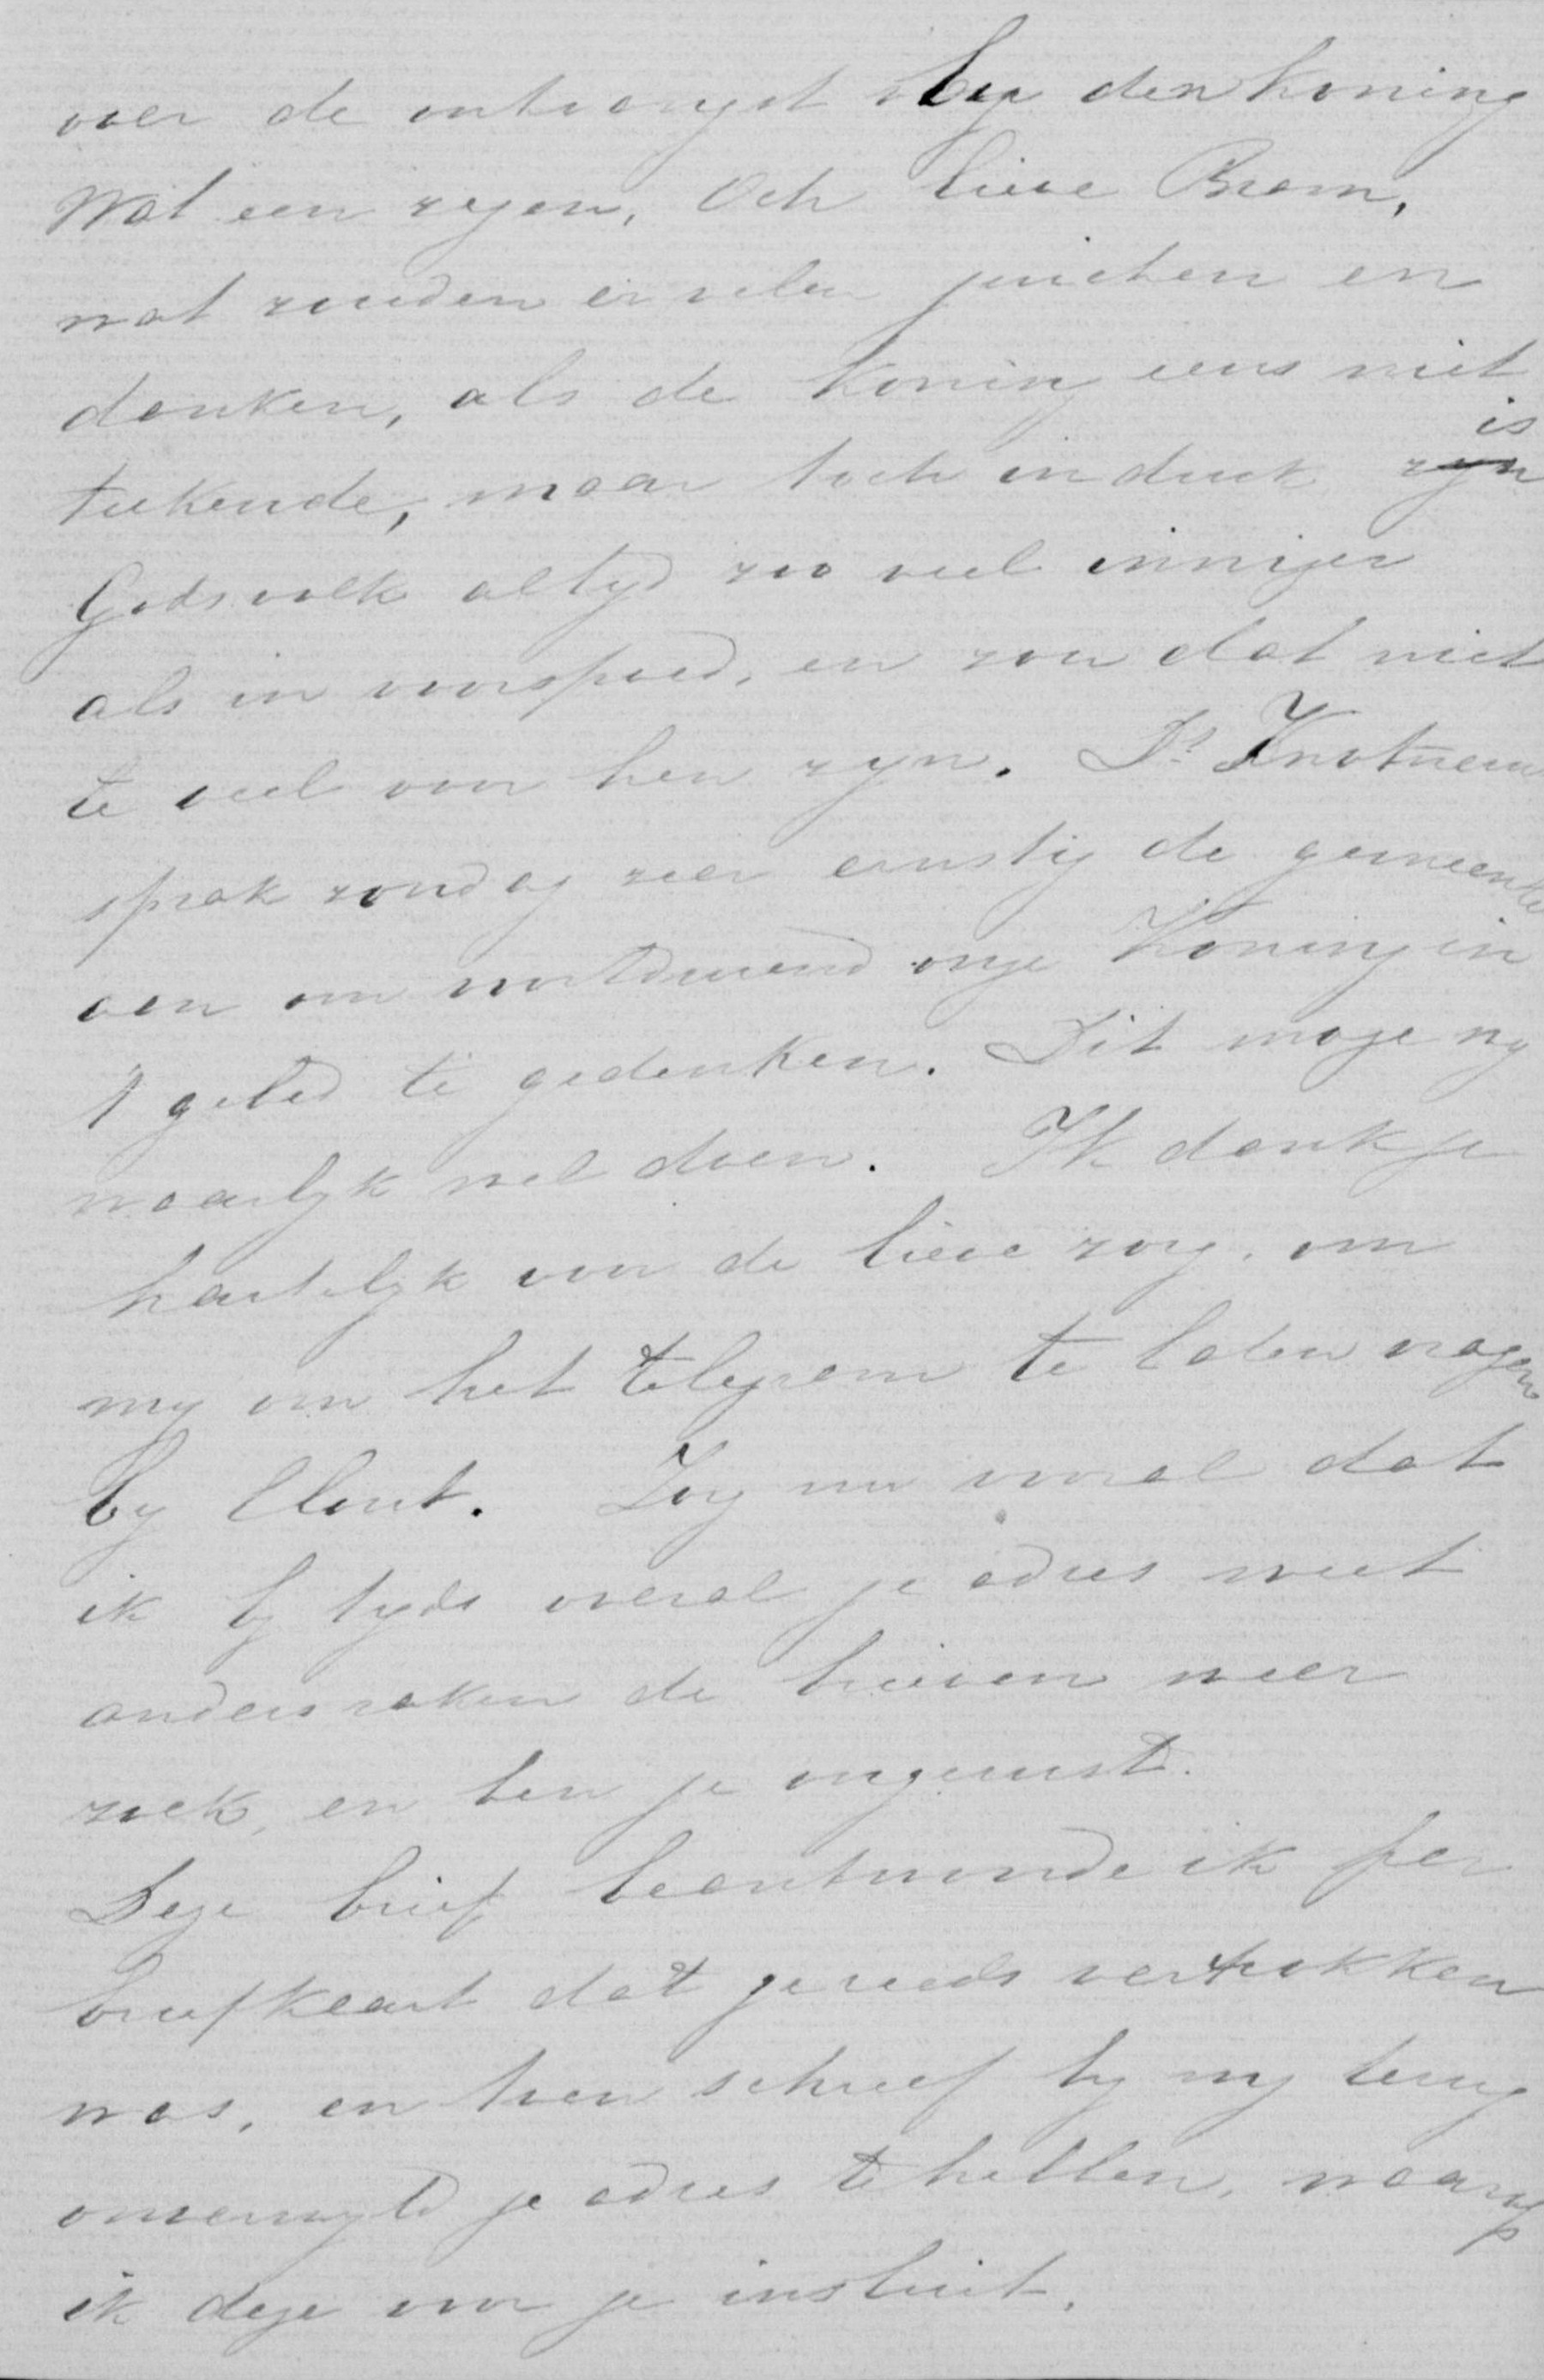 over de ontvangst by den koning
Wat een zegen, Och lieve Bram,
wat zouden er velen juichen en
danken, als de koning eens niet
teekende, maar toch in druk zyn is
Gods volk altyd zoo veel inniger
als in voorspoed, en zou dat niet
te veel voor hen zyn. Ds Knotnerus
sprak zondag zeer ernstig de gemeente
aen om voortdurend onze Koning in
't gebed te gedenken. Dit moge wy
waarlyk wel doen. Ik dank je
hartelyk voor de lieve zorg, om
my om het telegram te laten vragen
by Clout. Zorg nu vooral dat
ik by tyds overal je adres weet
anders raken de brieven weer
zoek, en ben je ongerust.
Deze brief beantwoorde ik per
briefkaart dat je reeds vertrokken
was, en toen schreef hy my terug
onvermyld je adres te hebben, waarop
ik deze voor je insluit.